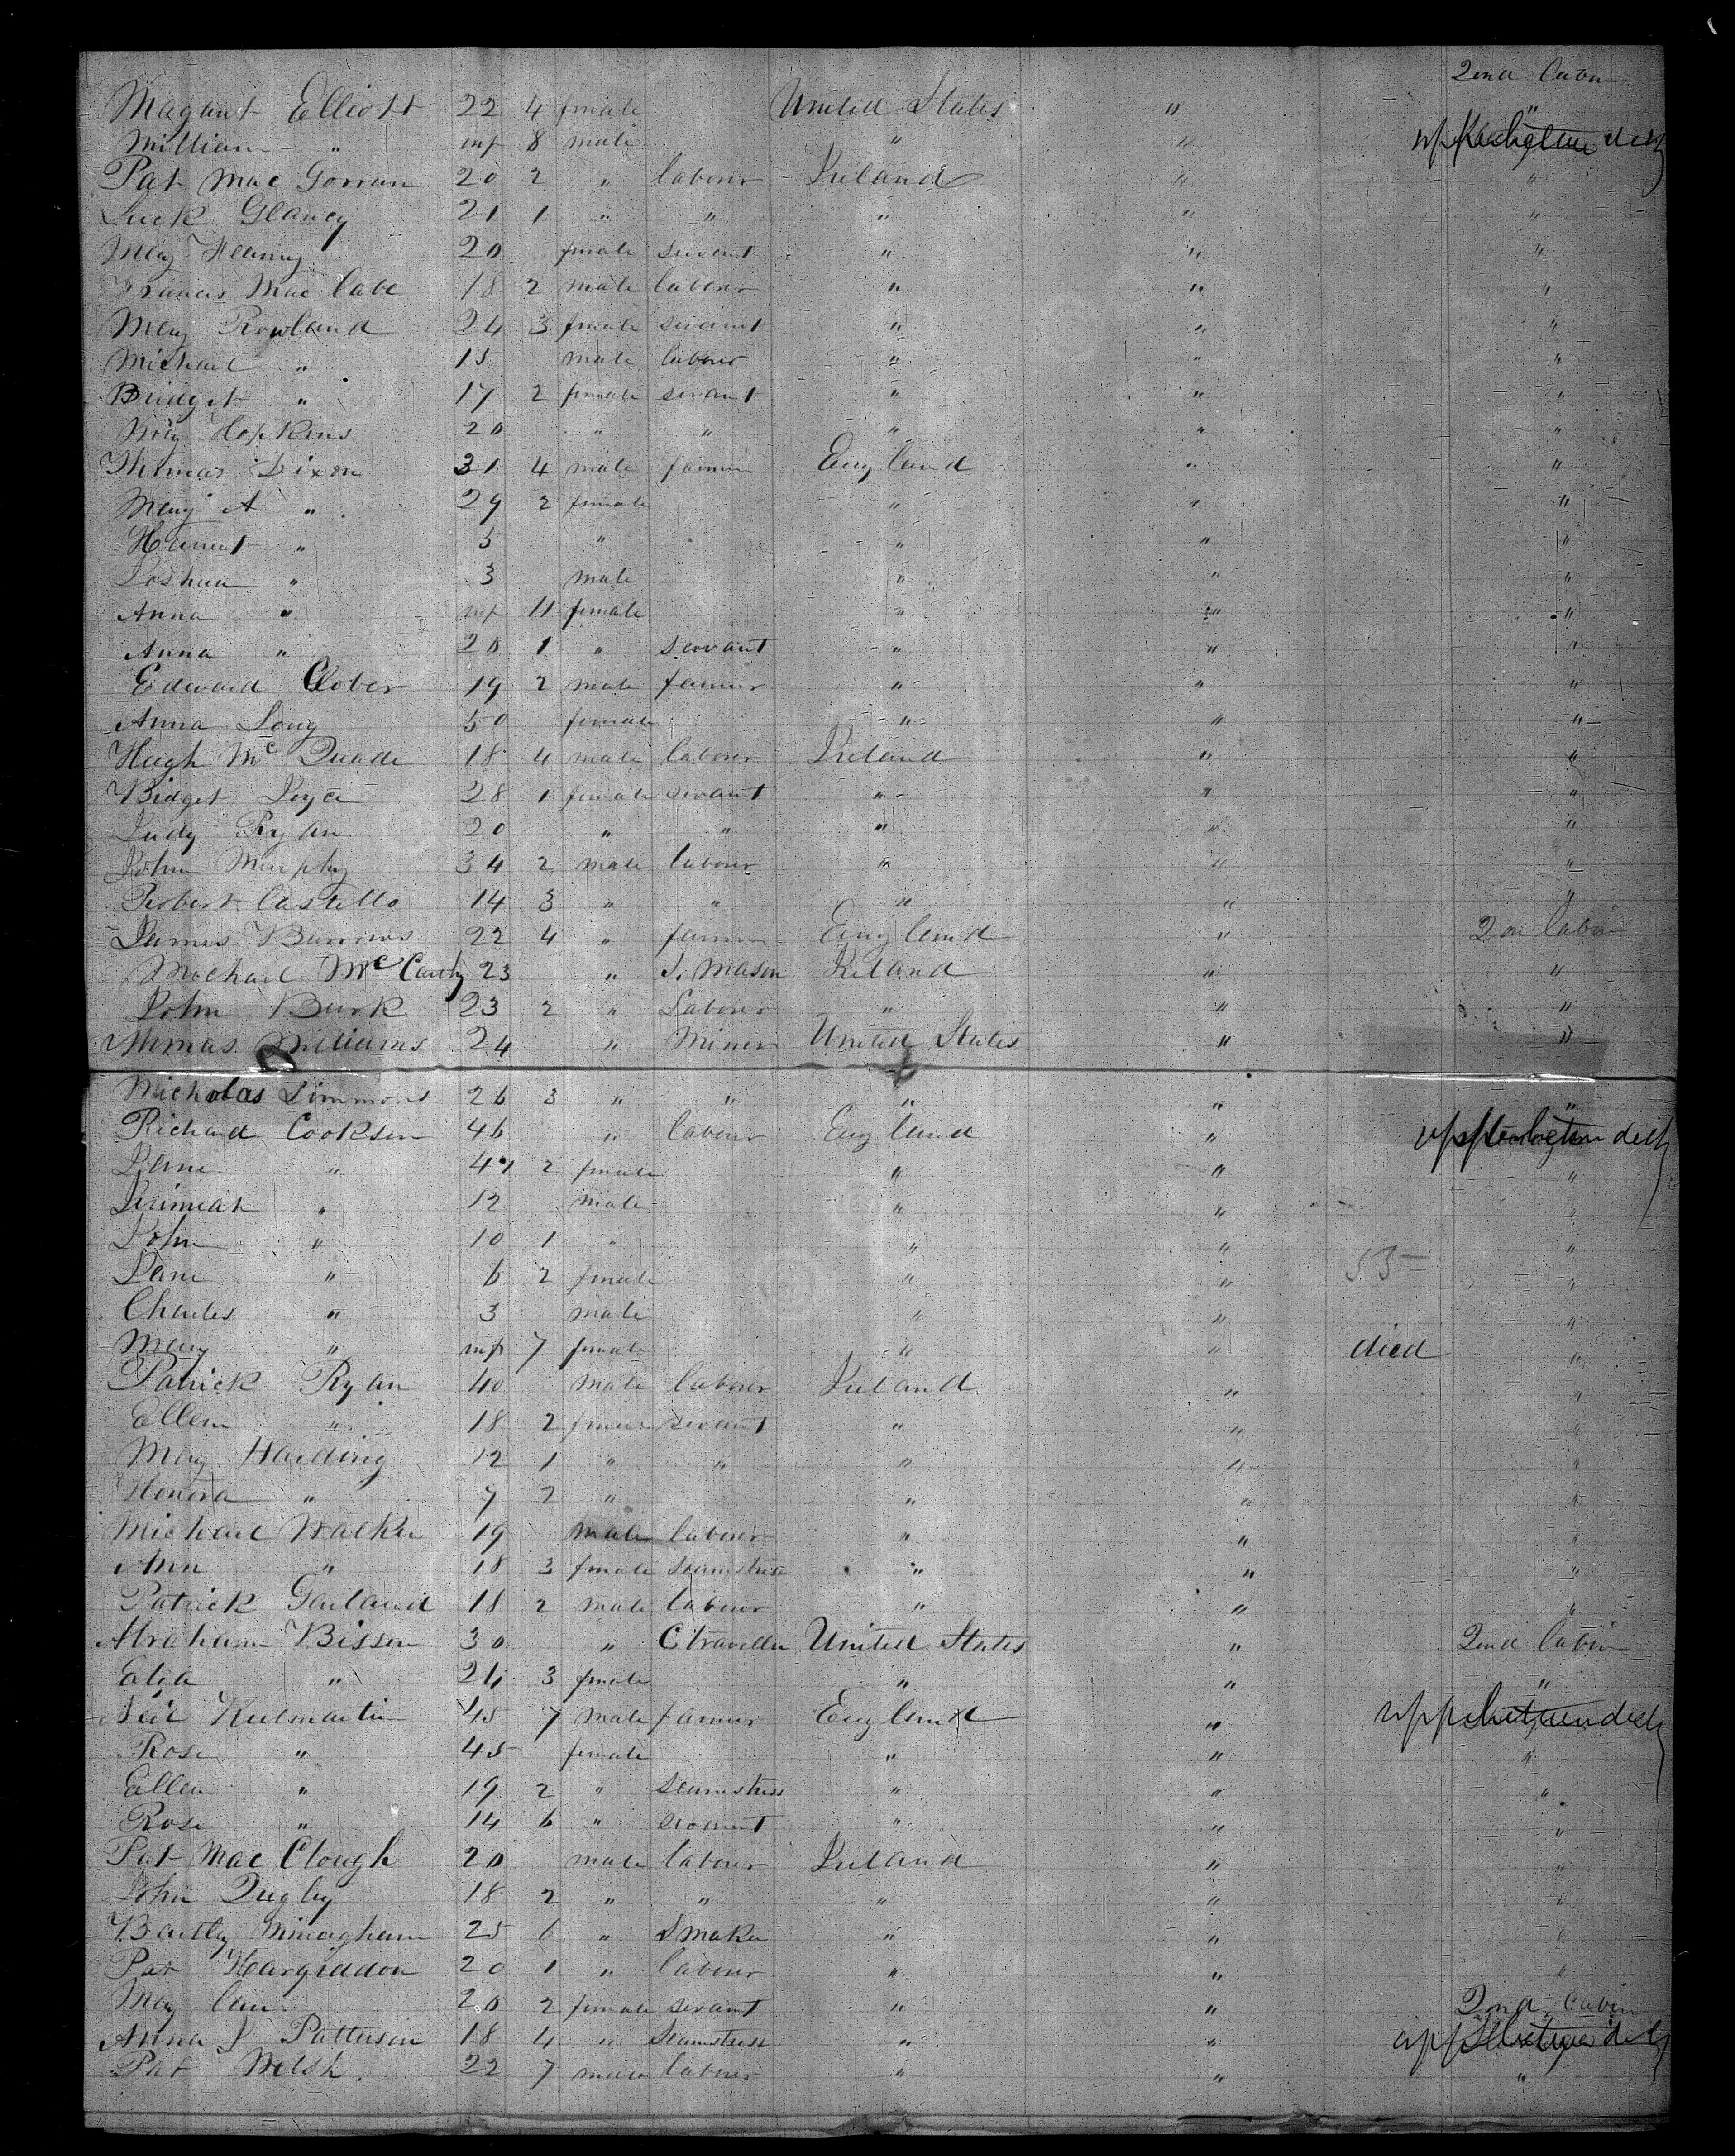 2ond Cabin
Magaret Elliott 22 4 female United States " "
William " inf 8 male " " upp deck
Pat Mac Gorran 20 2 " labour Ireland " "
Luck Glancy 21 1 " " " " "
Mary 20 female servant " " "
Francis Mac Cabe 18 2 male laborer " " "
Mary Rowland 24 3 female servant " " "
Michael " 15 male laborer " " "
Bridget " 17 2 female servant " " "
Mary Hopkins 20 " " " " "
Thomas Dixon 31 4 male farmer England " "
Mary A " 29 2 female " " "
Harriet " 5 " " " "
Joshua " 3 male " " "
Anna " inf 11 female " " "
Anna " 20 1 " servant " " "
Edward Clober 19 2 male farmer " " "
Anna Long 50 female " " "
Hugh Mc Quade 18 4 male laborer Ireland " "
Bidget Joyce 28 1 female servant " " "
Judy Ryan 20 " " " " "
John Murphy 34 2 male laborer " " "
Robert Castello 14 3 " " " " "
James Burrows 22 4 " farmer England " 2on Cabin
Mochael Mc Carthy 23 " S. Mason Ireland " "
John Burk 23 2 " Laborer " " "
Thomas Williams 24 " Miner United States " "
Nicholas Simmons 26 3 " " " " "
Richard Cookson 46 " labour England " upp deck
Jane " 47 2 female " " "
Jerimiah " 12 male " " "
John " 10 1 " " " "
Jane " 6 2 female " " "
Charles " 3 male " " "
Mary " inf 7 female " " died "
Patrick Ryan 40 male laborer Ireland " "
Ellen " 18 2 female servant " " "
Mary Harding 12 1 " " " " "
Honora " 7 2 " " " "
Michael Walker 19 male laborer " " "
Ann " 18 3 female seamstress " " "
Patrick Garland 18 2 male labour " " "
Abraham Bisson 30 " C traveller United States " 2ond Cabin
Eliza " 24 3 female " " "
Kilmartin 45 7 male farmer England " upp deck
Rose " 45 female " " "
Ellen " 19 2 " seamstress " " "
Rose " 14 6 " servant " " "
Pat Mac Clough 20 male laborer Ireland " "
John Qugley 18 2 " " " " "
Bartley 25 6 " S maker " " "
Pat Hargiddon 20 1 " laborer " " "
Mary 20 2 female servant " " 2ond Cabin
Anna J Patterson 18 4 " seamstress " " upp deck
Pat Welsh. 22 7 male laborer " " "